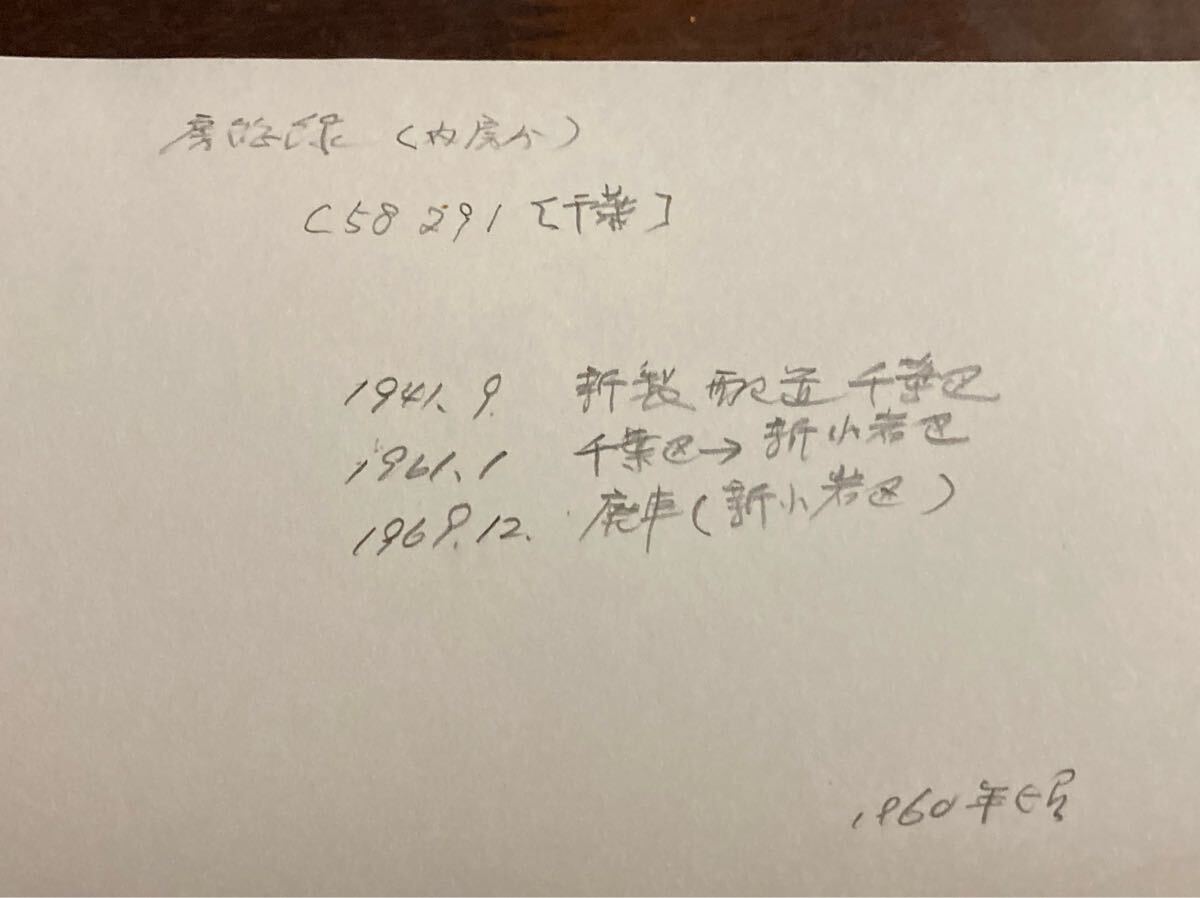 房総線 (内房分)
C58 291 [千葉]
1941.9. 新製配置 千葉区
1961.1 千葉区→新小岩区
1969.12. 廃車(新小岩区)
1960年